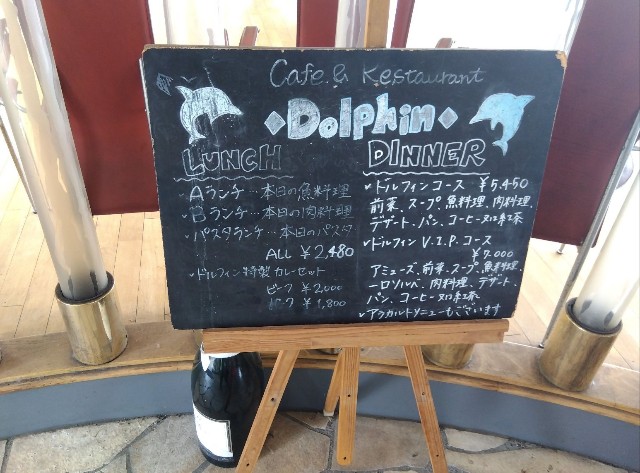 Cafe & Restaurant
Dolphin
LUNCH
Aランチ…本日の魚料理
Bランチ…本日の肉料理
パスタランチ…本日のパスタ
ALL ¥2,480
ドルフィン特製カレーセット
ビーフ ¥2,000
ポーク ¥1,800
DINNER
ドルフィンコース ¥5,450
前菜、スープ、魚料理、肉料理、
デザート、パン、コーヒー又は紅茶
ドルフィンV.I.P.コース
¥7,000
アミューズ、前菜、スープ、魚料理、
一口ソルベ、肉料理、デザート、
パン、コーヒー又は紅茶
アラカルトメニューもございます